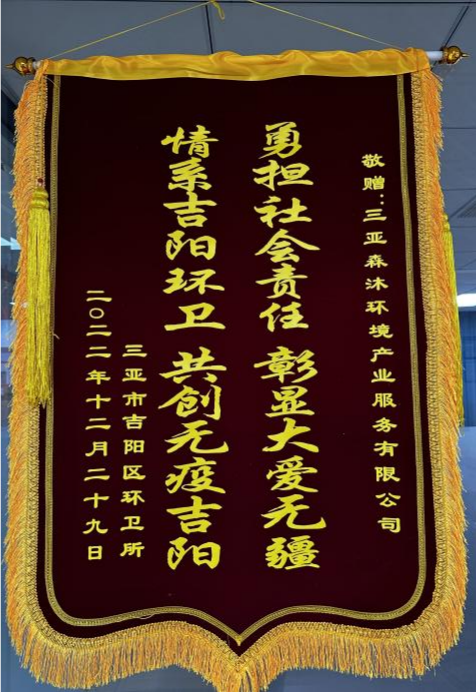 敬赠：三亚森沐环境产业服务有限公司
勇担社会责任 彰显大爱无疆
情系吉阳环卫 共创无疫吉阳
三亚市吉阳区环卫所
二〇二二年十二月二十九日